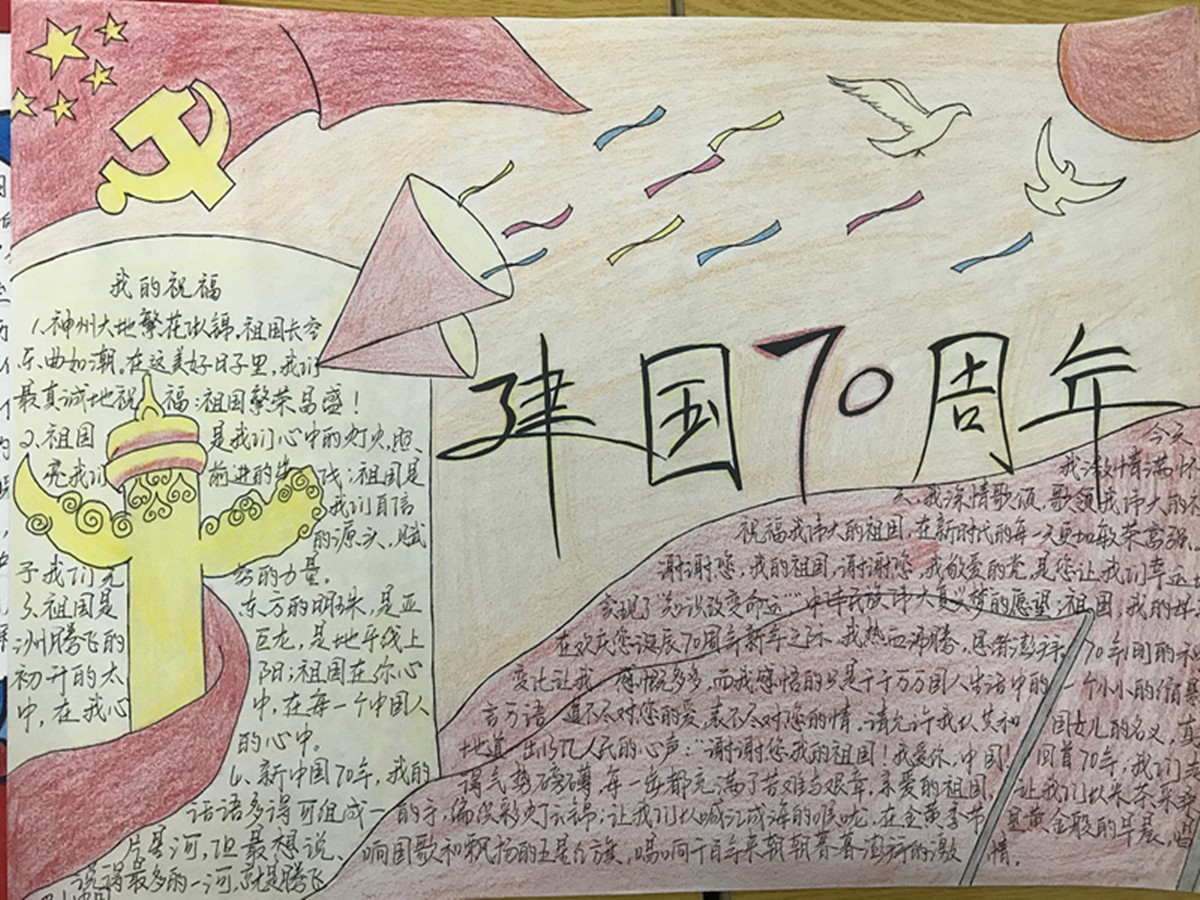 建国70周年
我的祝福
1、神州大地繁花似锦,祖国长空
乐曲如潮。在这美好日子里,我们
最真诚地祝福:祖国繁荣昌盛!
2、祖国是我们心中的灯火,照
亮我们前进的 ;祖国是
我们自信
的源头,赋
予我们无穷的力量。
3、祖国是东方的明珠,是亚
洲腾飞的巨龙,是地平线上
初升的太阳;祖国在你心
中,在我心中,在每一个中国人
的心中。
4、新中国70年,我的
话语多得可组成一
片星河,但最想说、
说得最多的一 就是腾飞
今天
我激情满怀
我深情歌颂,歌颂我伟大的
祝福我伟大的祖国,在新时代的每一天更加敏荣富强
谢谢您,我的祖国,谢谢您,我敬爱的党,是您让我们幸运
实现了“知识改变命运”中华民族伟大复兴梦的愿望;祖国,我的
在欢庆您诞辰70周年新年之际,我热血沸腾,思绪澎湃,70年间的
变化让我感慨多多,而我感悟的只是千千万万国人生活中的一个小小的缩
言万语道不尽对您的爱,表不尽对您的情,请允许我以共和国女儿的名义,真
地道出13亿人民的心声:“谢谢您我的祖国!我爱你,中国!回首70年,我们走
得气势磅礴,每一步都充满了苦难与艰辛,亲爱的祖国,让我们以
的字,偏 彩灯 锦;让我们以喊江成海的喉咙,在金黄季节里黄金般的早晨,唱
响国歌和飘扬的五星红旗,唱响千百年来朝朝暮暮 的激情。